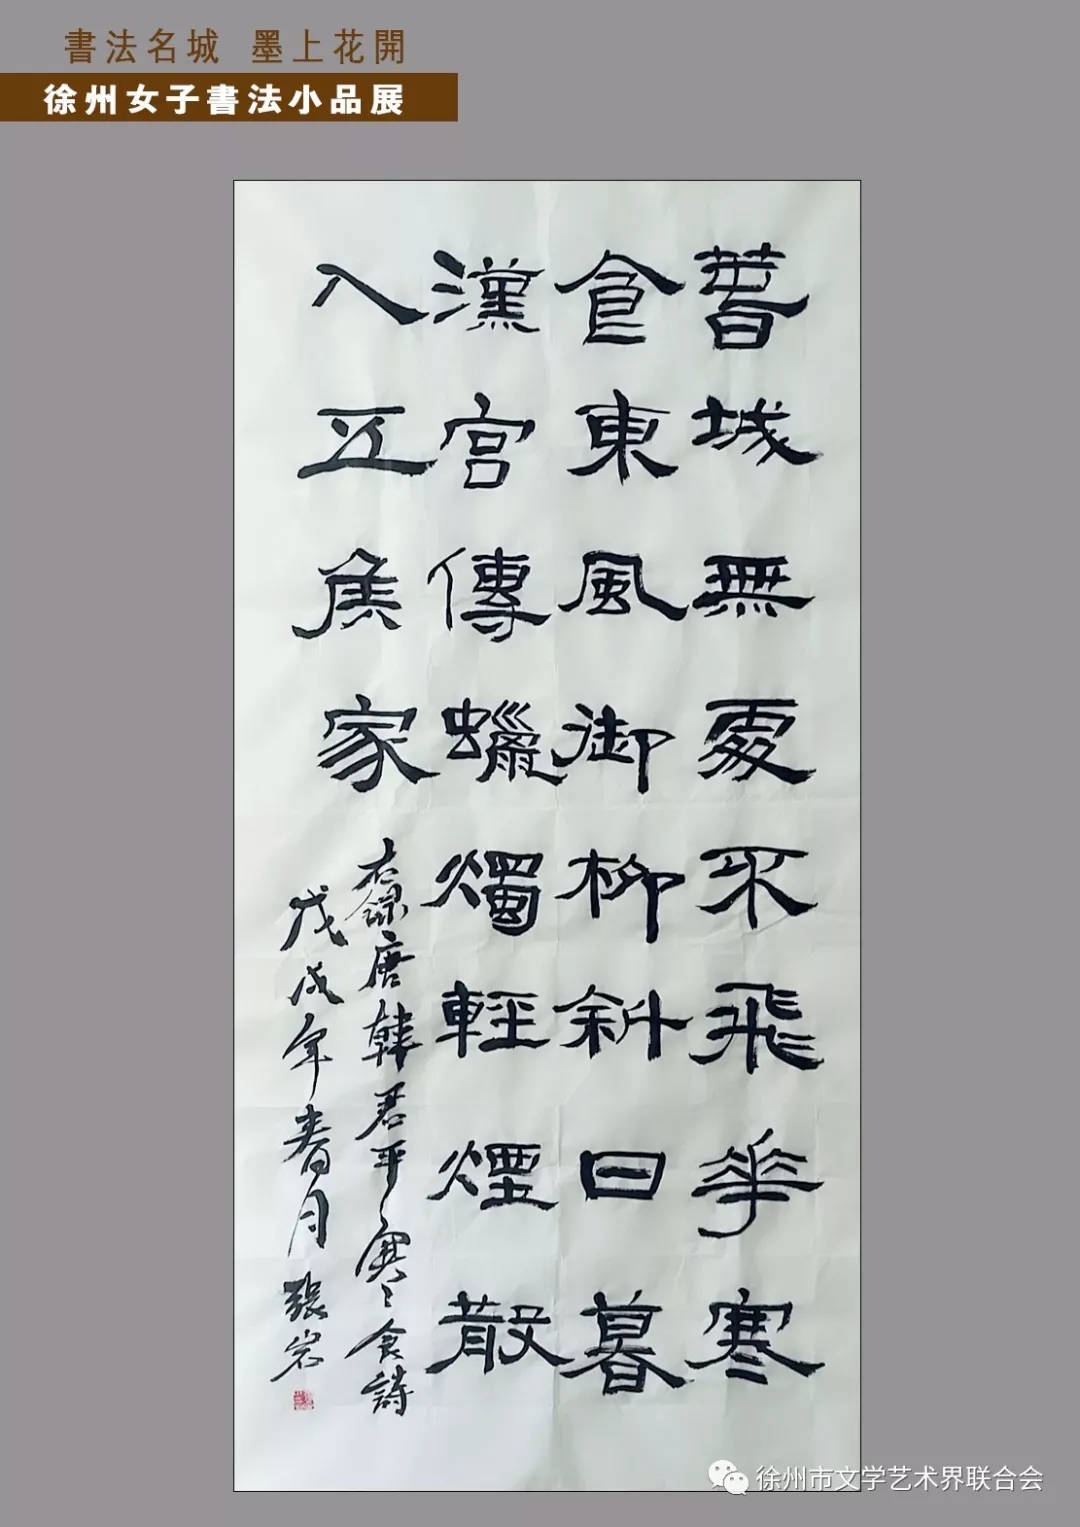 書法名城 墨上花開
徐州女子書法小品展
萅城無處不飛華寒
食東風御柳斜日暮
漢宮傳蠟燭輕煙散
入五侯家
右錄唐韓君平寒食詩
戊戌年春月張岩
徐州市文学艺术界联合会